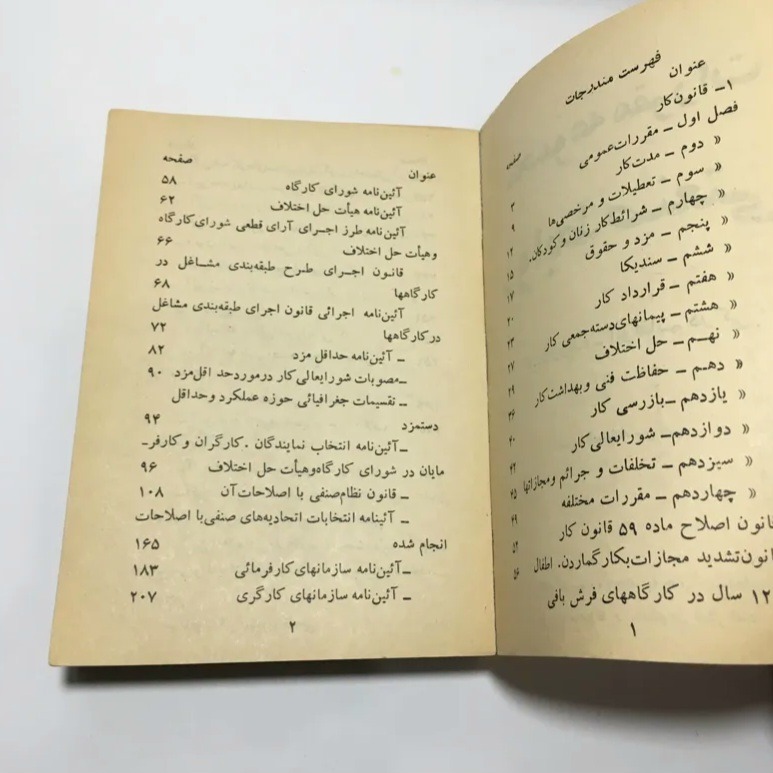 فهرست مندرجات
عنوان
صفحه
۱ـ قانون‌کار
فصل اول ـ مقررات‌عمومی ۳
« دوم ـ مدت‌کار ۹
« سوم ـ تعطیلات و مرخصی‌ها ۱۲
« چهارم ـ شرائط‌کار زنان و کودکان. ۱۵
« پنجم ـ مزد و حقوق ۱۷
« ششم ـ سندیکا ۲۰
« هفتم ـ قرارداد کار ۲۳
« هشتم ـ پیمانهای‌دسته‌جمعی کار ۲۷
« نهـم ـ حل اختلاف ۲۹
« دهـم ـ حفاظت فنی و بهداشت‌کار ۳۶
« یازدهم ـ بازرسی کار ۴۰
« دوازدهم ـ شورایعالی‌کار ۴۲
« سیزدهم ـ تخلفات و جرائم و مجازاتها ۴۵
« چهاردهم ـ مقررات مختلفه ۴۹
قانون اصلاح ماده ۵۹ قانون کار ۵۴
قانون‌تشدید مجازات‌بکارگماردن. اطفال ۵۶
۱۲ سال در کارگاههای فرش بافی
۱
عنوان صفحه
آئین‌نامه شورای کارگاه ۵۸
آئین‌نامه هیأت حل اختلاف ۶۲
آئین‌نامه طرز اجرای آرای قطعی شورای‌کارگاه
وهیأت حل اختلاف ۶۶
قانون اجرای طرح طبقه‌بندی مشاغل در
کارگاهها ۶۸
آئین‌نامه اجرائی قانون اجرای طبقه‌بندی مشاغل
درکارگاهها ۷۲
ـ آئین‌نامه حداقل مزد ۸۲
ـمصوبات شورایعالی‌کار درمورد حداقل‌مزد ۹۰
ـ تقسیمات جغرافیائی حوزه عملکرد وحداقل
دستمزد ۹۴
ـ آئین‌نامه انتخاب نمایندگان .کارگران و کارفرـ
مایان در شورای کارگاه‌وهیأت حل اختلاف ۹۶
ـ قانون نظام‌صنفی با اصلاحات‌آن ۱۰۸
ـ آئینامه انتخابات اتحادیه‌های صنفی‌با اصلاحات
انجام شده ۱۶۵
ـآئین‌نامه سازمانهای‌کارفرمائی ۱۸۳
ـ آئین‌نامه سازمانهای کارگری ۲۰۷
۲